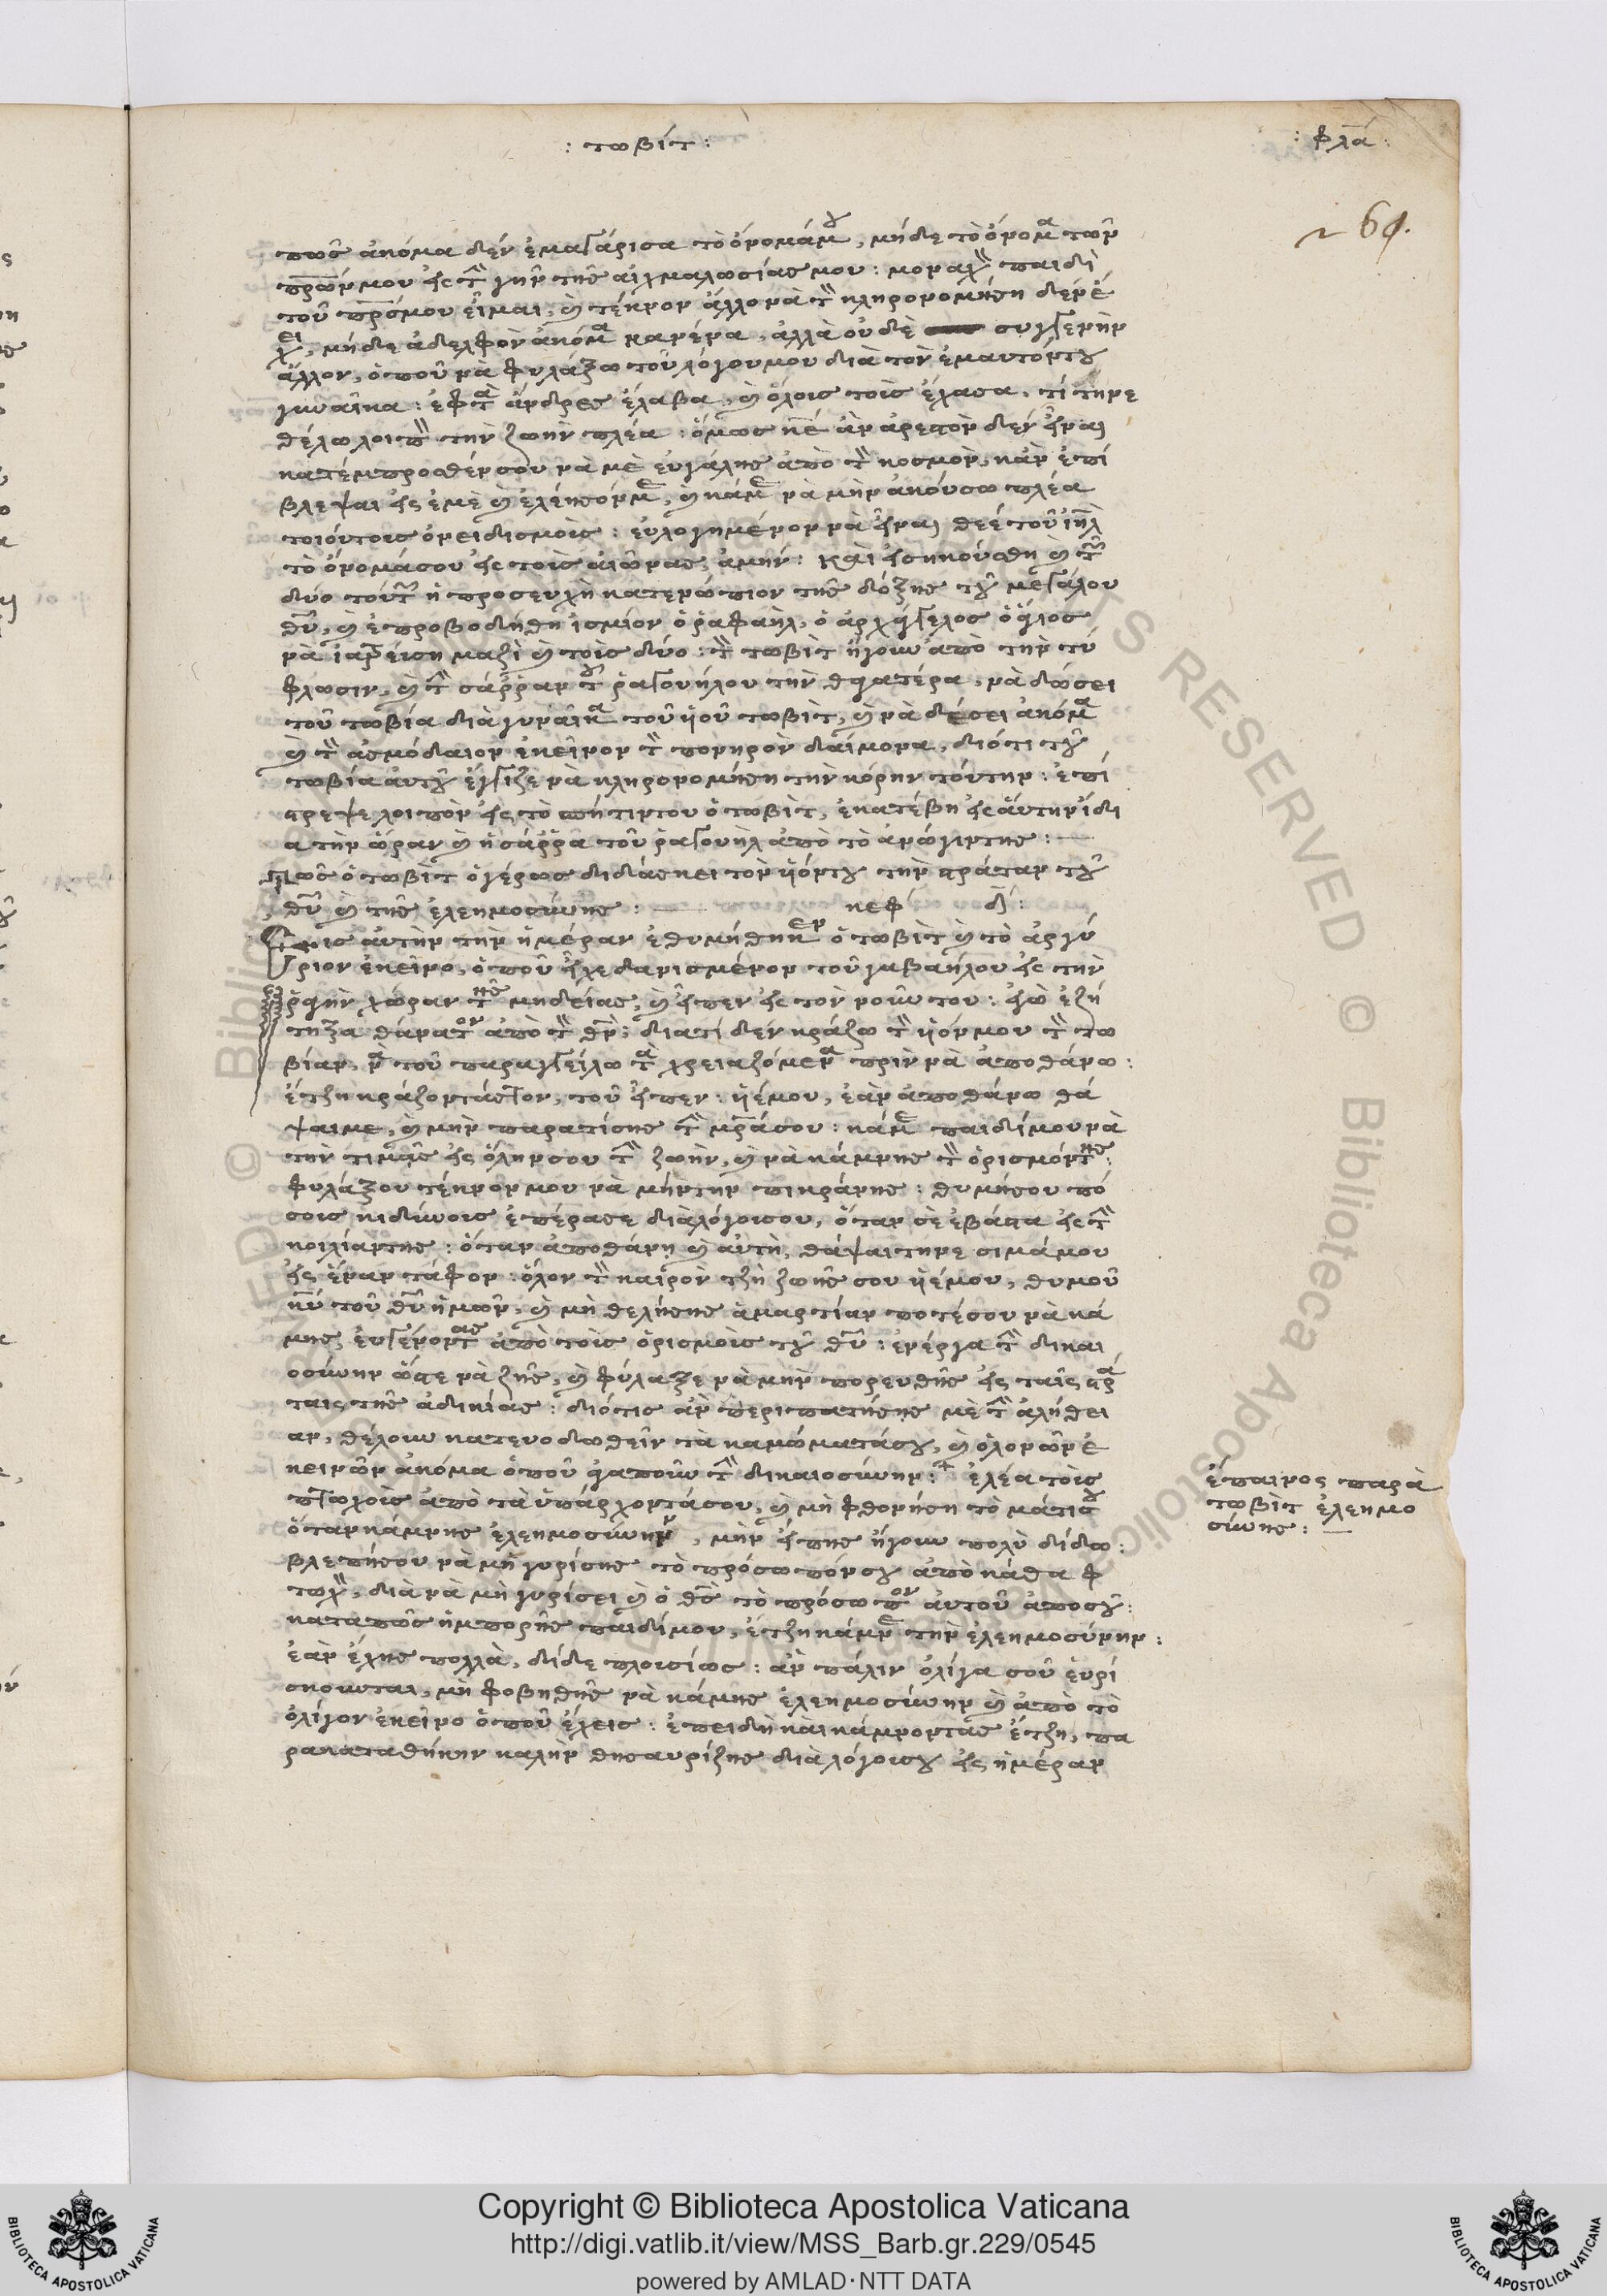 : τωβίτ :
: φλα :
261.
πῶς ἀκόμα δέν ἐμαγάρισα τὸ ὄνομάμου, μήδε τὸ ὄνομα τῶν
πρων μου εἰς τὴν γῆν τῆς αἰχμαλωσίας μου : μοναχὸν παιδὶ
τοῦ προσμου εἶμαι, καὶ τέκνον ἄλλο νὰ τὸν κληρονομήση δεν έ
χει, μήδε ἀδελφὸν ἀκόμα κανένα, ἀλλὰ οὐδὲ συγγενὴν
ἄλλον, ὁποῦ νὰ φυλάξω τοῦ λόγουμου διὰ τὸν ἐμαυτόντου
γυναῖκα : ἐφτὰ ἄνδρες ἔλαβα, καὶ ὅλοις τοὶς ἔχασα, τί τηνε
θέλω λοιπὸν τὴν ζωὴν πλέα : ὅμως κε ἂν ἀρεστὸν δέν εἶναι
κατέμπροσθέν σου νὰ μὲ εὐγάλης ἀπὸ τὸν κοσμον, κἂν ἐπί
βλεψαι εἰς ἐμὲ καὶ ἐλέησόν με, καὶ κάμε νὰ μὴν ἀκούσω πλέα
τοιούτοις ὀνειδισμοὶς : εὐλογημένον νὰ εἶναι θεέ τοῦ ιηλ
τὸ ὄνομάσου εἰς τοὶς αἰῶνας, ἀμήν : Καὶ εἰσηκούσθη καὶ τῶν
δύο τούτων ἡ προσευχὴ κατενώπιον τῆς δόξης τοῦ μεγάλου
θυ, καὶ ἐπροβοδήθη ἰσμίον ὁ ῥαφαὴλ, ὁ ἀρχάγγελος ὁ ἅγιος
νὰ ἰατρεύση μαζὶ καὶ τοὶς δύο : τὸν τωβὶτ ἤγουν ἀπὸ τὴν τύ
φλωσιν, καὶ τὴν σάῤῥαν τοῦ ῥαγουήλου τὴν θυγατέρα, νὰ δώσει
τοῦ τωβία διὰ γυναῖκα τοῦ ὑιοῦ τωβὶτ, καὶ νὰ δέσει ἀκόμα
καὶ τὸν ἀσμόδαιον ἐκεῖνον τὸν πονηρὸν δαίμονα, διότι τοῦ
τωβία αὐτοῦ ἔγγιζε νὰ κληρονομήση τὴν κόρην τούτην : ἐπί
στρεψε λοιπὸν εἰς τὸ σπήτιντου ὁ τωβὶτ, ἐκατέβη εἰς αὐτην ίδι
α τὴν ὥραν καὶ ἡ σάῤῥα τοῦ ῥαγουὴλ ἀπὸ τὸ ἀνώγιντης :
Πῶς ὁ τωβὶτ ὁ γέρως διδάσκει τὸν ὑιόντου τὴν στράταν τοῦ
θυ καὶ τῆς ἐλεημοσύνης : κεφ δ :
Εἰς αὐτὴν τὴν ἡμέραν ἐθυμήθηκεν ὁ τωβὶτ καὶ τὸ ἀργύ
ριον ἐκεῖνο, ὁποῦ εἶχε δανισμένον τοῦ γαβαήλου εἰς τὴν
ῥάγην χώραν τῆς μηδείας, καὶ εἶπεν εἰς τὸν νοῦν του : ἐγὼ ἐζή
τηξα θάνατον ἀπὸ τὸν θν, διατί δέν κράζω τὸν ὑιόν μου τὸν τω
βίαν, νὰ τοῦ παραγγείλω τὰ χρειαζόμενα πρὶν νὰ ἀποθάνω :
ἔτζη κράζοντάστον, τοῦ εἶπεν : ὑιέμου, ἐὰν ἀποθάνω θά
ψαιμε, καὶ μὴν παρατίσης τὴν μράσου : κάμε παιδίμου νὰ
τὴν τιμᾶς εἰς ὅλην σου τὴν ζωὴν, καὶ νὰ κάμνης τὸν ὁρισμόντης :
φυλάξου τέκνον μου νὰ μήντην πικράνης : θυμήσου πό
σοις κιδύνοις ἐπέρασε διὰλόγοισου, ὅταν σὲ ἐβάστα εἰς τὴν
κοιλίαντης : ὅταν ἀποθάνη καὶ αὐτὴ, θάψαιτηνε σιμάμου
εἰς ἕναν τάφον : ὅλον τὸν καιρὸν τζὴ ζωῆς σου ὑιέμου, θυμοῦ
κυ τοῦ θυ ἡμῶν, καὶ μὴ θελήσης ἁμαρτίαν ποτέσου νὰ κά
μης, εὐγένοντας ἀπὸ τοὶς ὁρισμοὶς τοῦ θυ : ἐνέργα τὴν δικαι
οσύνην ὥστε νὰ ζῆς, καὶ φύλαξε νὰ μὴν πορευθῆς εἰς ταῖς στρά
ταις τῆς ἀδικίας : διότις ἂν περιπατήσης μὲ τὴν ἀλήθει
αν, θέλουν κατευοδωθεῖν τὰ καμώματάσου, καὶ ὁλονῶν ἐ
κεινῶν ἀκόμα ὁποῦ ἀγαποῦν τὴν δικαιοσύνην : + ἐλέα τοὶς
πτωχοὶς ἀπὸ τὰ ὑπάρχοντάσου, καὶ μὴ φθονήση τὸ μάτισου
ὅταν κάμνης ἐλεημοσύνην, μὴν εἴπης ἤγουν πολὺ δίδω :
βλεπήσου νὰ μὴ γυρίσης τὸ πρόσωπόνσου ἀπὸ κάθα π
τωχὸν, διὰ νὰ μὴ γυρίσει καὶ ὁ θς τὸ πρόσωπον αὐτοῦ ἀποσοῦ :
καταπῶς ἠμπορῆς παιδίμου, ἔτζη κάμνε τὴν ἐλεημοσύνην :
ἐὰν ἔχης πολλὰ, δίδε πλοισίως : ἂν πάλιν ὀλίγα σοῦ εὑρί
σκουνται, μὴ φοβηθῆς νὰ κάμης ἐλεημοσύνην καὶ ἀπὸ τὸ
ὀλίγον ἐκεῖνο ὁποῦ ἔχεις : ἐπειδὴ καὶ κάμνοντας ἔτζη, πα
ρακαταθήκην καλὴν θησαυρίζης διὰ λόγοισου εἰς ἡμέραν
ἔπαινος παρὰ
τωβὶτ ἐλεημο
σύνης :
Copyright © Biblioteca Apostolica Vaticana
http://digi.vatlib.it/view/MSS_Barb.gr.229/0545
powered by AMLAD·NTT DATA